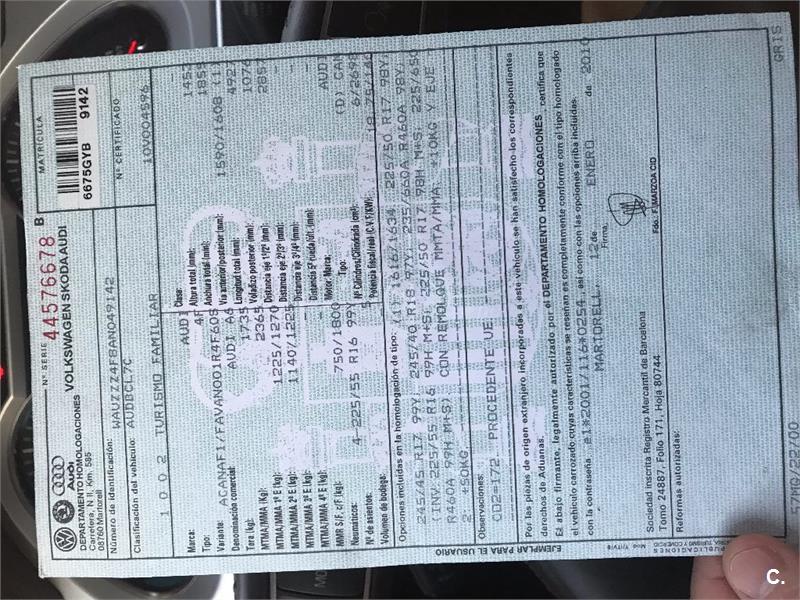 Nº SERIE 44576678 B
VOLKSWAGEN SKODA AUDI
Audi
DEPARTAMENTO HOMOLOGACIONES
Carretera, N II, Km. 585
08760 Martorell
MATRICULA
6675GYB 9142
Número de identificación: WAUZZZ4F8AN049142
Nº CERTIFICADO
10V004596
Clasificación del vehículo: AUDBCL7C
1002 TURISMO FAMILIAR
Marca: AUDI
Tipo: 4F
Variante: ACANAF1/FAVAN001R4F60S
Denominación comercial: AUDI A6
Tara (kg): 1735
MTMA/MMA (Kg): 2365
MTMA/MMA 1º E (kg): 1225/1270
MTMA/MMA 2º E (kg): 1140/1225
MTMA/MMA 3º E (kg):
MTMA/MMA 4º E (kg):
MMR S/F, c/F (kg): 750/1800
Neumáticos: 4-225/55 R16 99Y
Nº de asientos: 5
Volumen de bodega:
Clase: -
Altura total (mm): 1452
Anchura total: (mm): 1855
Vía anterior/posterior (mm): 1590/1608 (1)
Longitud total (mm): 4927
Voladizo posterior (mm): 1076
Distancia eje 1º/2º (mm): 2857
Distancia eje 2º/3º (mm): -
Distancia eje 3º/4º (mm): -
Distancia 5ª rueda/ult. (mm): -
Motor: Marca: AUDI
Tipo: (D) CAN
Nº Cilindros/Cilindrada (cm³): 6/2698
Potencia fiscal/real (C.V.F/KW): 18,75/140
Opciones incluidas en la homologación de tipo: (1) 1616/1634 225/50 R17 98Y,
245/45 R17 99Y, 245/40 R18 97Y, 235/660A R460A 98Y,
(INV:225/55 R16 99H M+S, 225/50 R17 98H M+S, 225/650
R460A 99H M+S) CON REMOLQUE MMTA/MMA: +10KG Y EJE
2: +50KG.
Observaciones:
CO2=172 PROCEDENTE UE
Por las piezas de origen extranjero incorporadas a este vehículo se han satisfecho los correspondientes
derechos de Aduanas.
El abajo firmante, legalmente autorizado por el DEPARTAMENTO HOMOLOGACIONES, certifica que
el vehículo carrozado cuyas características se reseñan es completamente conforme con el tipo homologado
con la contraseña e1*2001/116*0254, así como con las opciones arriba incluidas.
MARTORELL, 12 de ENERO de 2010
Firma,
Fdo.: F. MARZOA CID
Sociedad Inscrita Registro Mercantil de Barcelona
Tomo 24887, Folio 171, Hoja 80744
Reformas autorizadas:
EJEMPLAR PARA EL USUARIO
57MQ/22/00
GRIS
C.